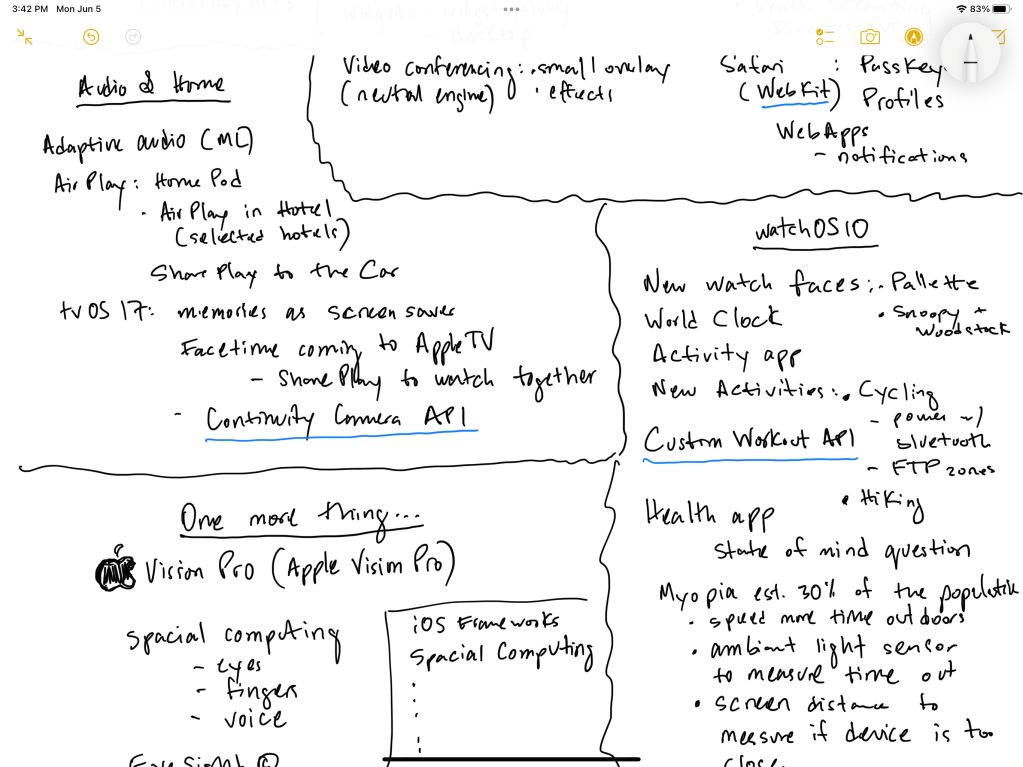 3:42 PM Mon Jun 5
83%
Video conferencing: • small overlay
(neutral engine) • effects
Safari : PassKey
(WebKit) Profiles
WebApps
- notifications
Audio & Home
Adaptive audio (ML)
AirPlay: HomePod
• AirPlay in Hotel
(selected hotels)
SharePlay to the Car
tvOS 17: memories as screen saver
Facetime coming to AppleTV
- SharePlay to watch together
- Continuity Camera API
watchOS10
New watch faces: • Pallette
• Snoopy +
Woodstock
World Clock
Activity app
New Activities: • Cycling
- power w/
bluetooth
- FTP zones
Custom Workout API
• Hiking
Health app
State of mind question
Myopia est. 30% of the population
• spend more time outdoors
• ambient light sensor
to measure time out
• screen distance to
measure if device is too
close
One more thing...
Vision Pro (Apple Vision Pro)
spacial computing
- eyes
- fingers
- voice
iOS Frameworks
Spacial Computing
EyeSight